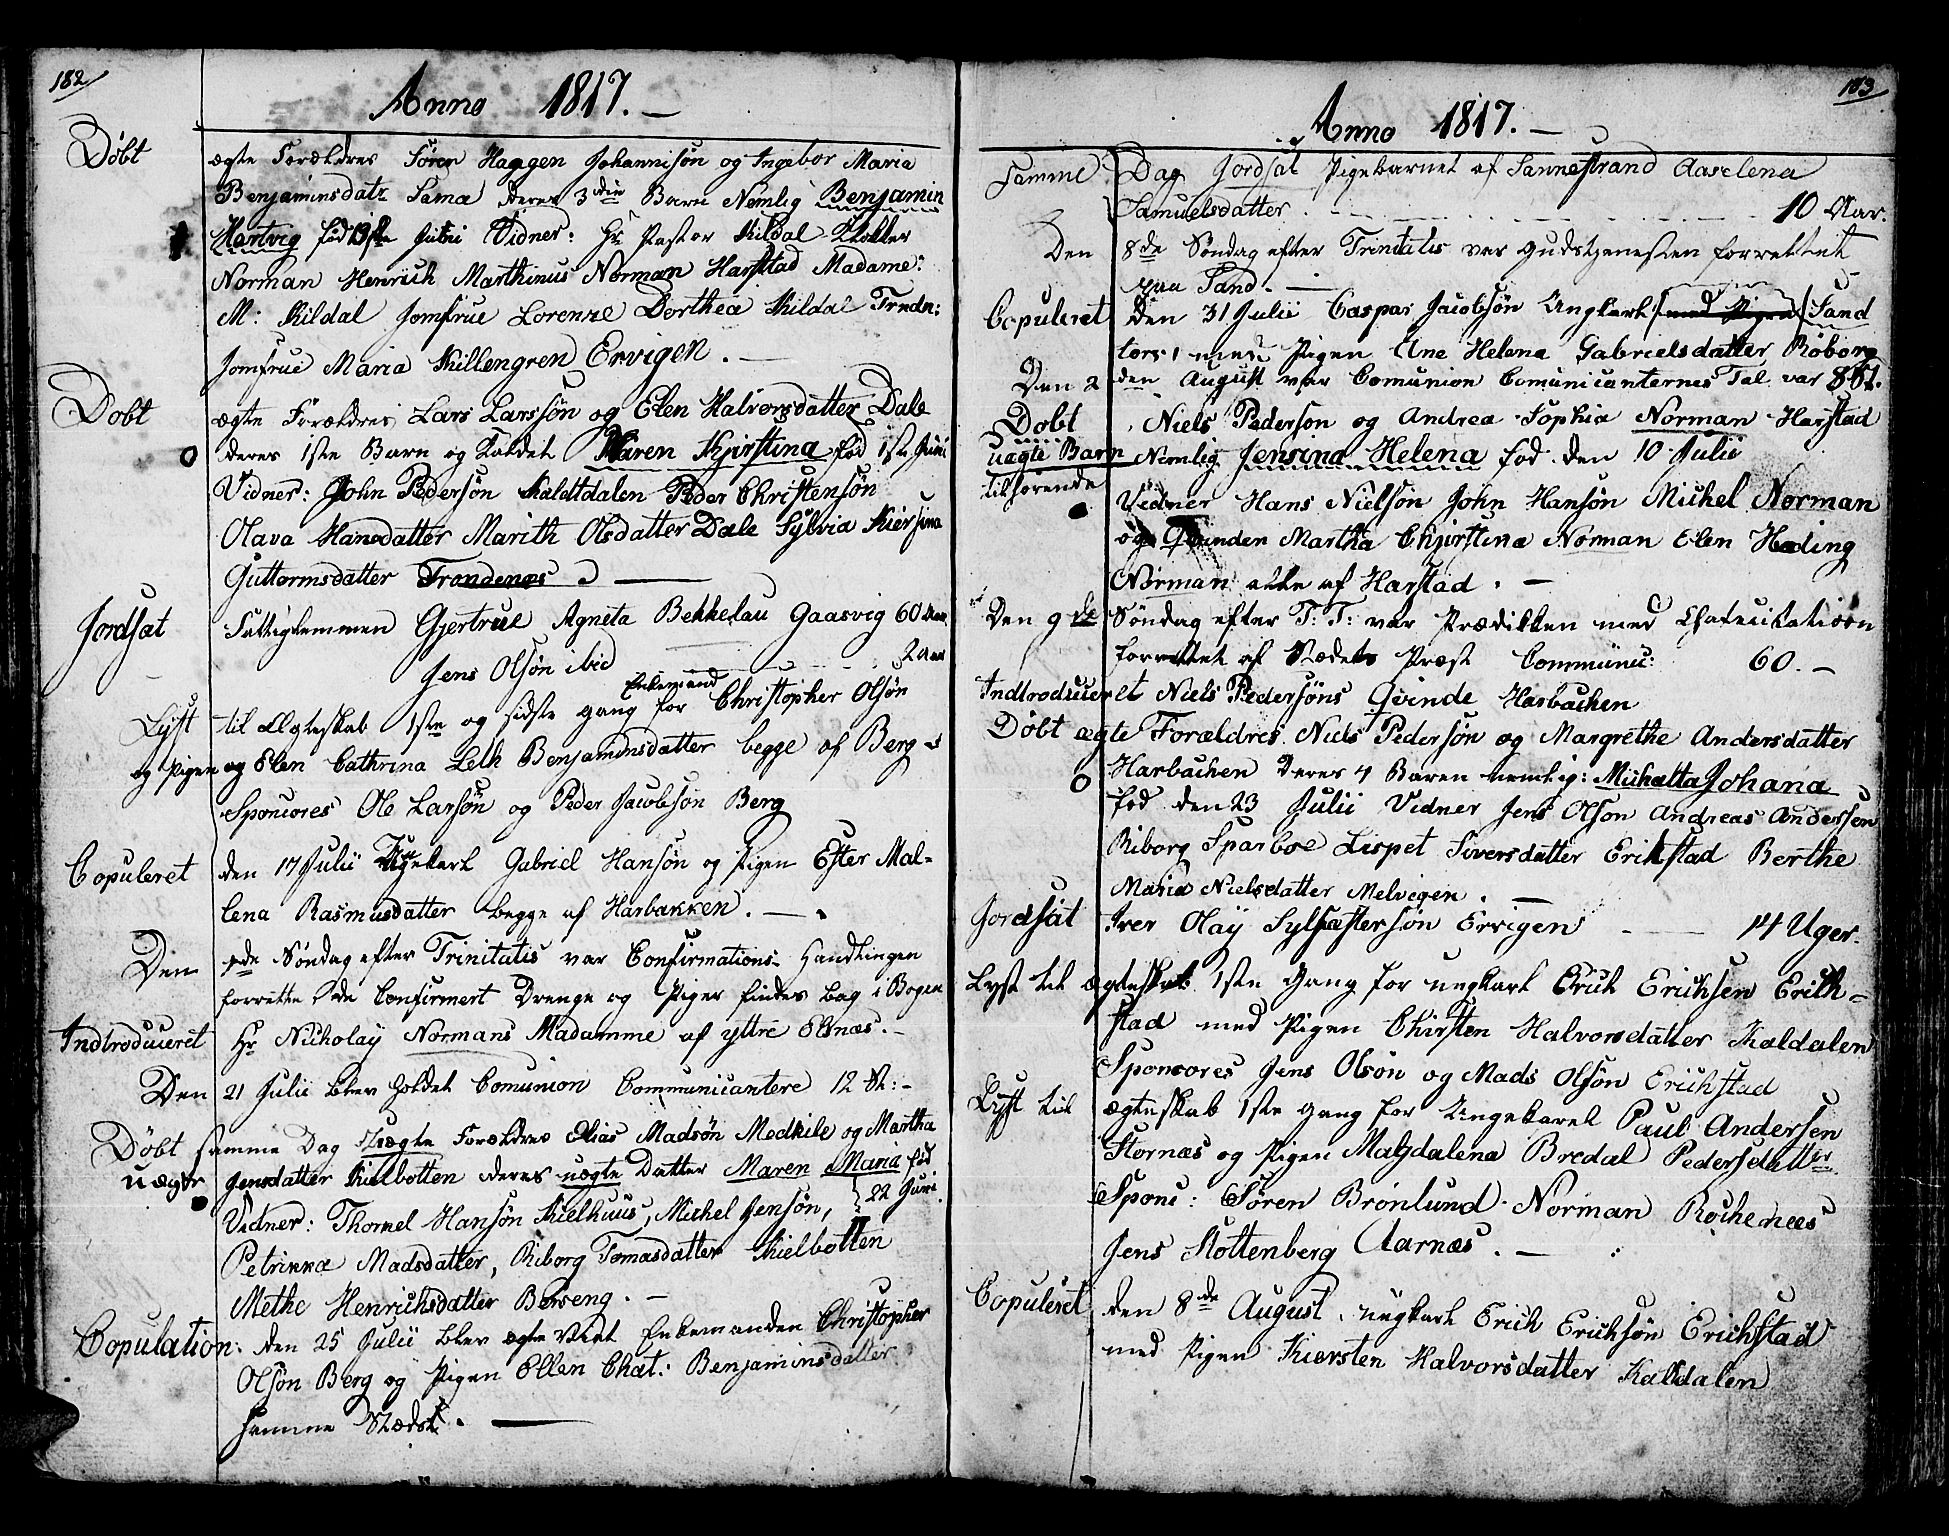 182
Anno 1817. —
Døbt ægte Forældres Søren Haagen Johannisøn og Ingebor Maria
Benjaminsdatr Sama deres 3die Barn Nemlig Benjamin
Hartvig fød Juni Vidner: Hr Pastor Kildal Klokker
Norman Henrich Marthinus Norman Harstad Madame:
M: Kildal Jomfrue Lorenze Dorthea Kildal Trndn:
Jomfrue Maria Killengren Ervigen. —
Døbt ægte Forældres Lars Larssøn og Elen Halvorsdatter Dale
deres 1ste Barn og Kaldet Karen Kjirstina fød 1ste Juni
Vidner: John Pedersøn Kaldtdalen Peder Christensøn
Olava Hansdatter Marith Olsdatter Dale Sylvia Kiersina
Guttormsdatter Trondenæs —
Jordsat Fattiglemmen Gjertrue Agneta Bekkelau Gaasvig 60 Aar
Jens Olsøn ibid — 2 Aar
Enkemand
Lyst til Ægteskab 1ste og sidste gang for Christopher Olsøn
og Pigen og Elen Cathrina Leth Benjaminsdatter begge af Berg
Sponcores Ole Larsøn og Peder Jacobsøn Berg
Copuleret den 17 Julii Ungkarl Gabriel Hansøn og Pigen Ester Mal=
lena Rasmusdatter begge af Harbakken. —
Den Søndag efter Trinitatis var Confirmations Handlingen
forrette, de Confirmert Drenge og Piger findes bag i Bogen
Indtroduceret Hr Nikolay Normans Madamme af yttre Elsnæs. —
Den 21 Julii blev holdet Comunion Communicantere 12 St: —
Døbt samme Dag Uægte Forældres Elias Madsøn Medkile og Martha
uægte Jensdatter Kielbotten deres uægte Datter Maren Maria fød
22 Juni
Vidner: Thomel Hansøn Kielhuus, Michel Jensøn,
Petrikka Madsdatter, Riborg Tomasdatter Kielbotten
Methe Henrichsdatter Berseng. —
Copulation: den 25 Julii blev ægte Viet Enkemanden Christopher
Olsøn Berg og Pigen Ellen Chat: Benjaminsdatter
samme Stædst. —
183
Anno 1817. —
Samme Dag Jordsat Pigebarnet af Sannestrand Aaselena
Samuelsdatter — 10 Aar.
Den 8de Søndag efter Trinitatis var Gudstjenesten forrettet
paa Sand. —
Copuleret den 31 Julii Caspar Jacobsøn Ungkarl med Pigen Sand
tors, med Pigen Ane Helena Gabrielsdatter Røborg
Den 2 den August var Comunion Comunicanternes Tal var 861.
Døbt Niels Pedersøn og Andrea Sophia Norman Harstad
uægte Barn Nemlig Jensina Helena fød den 10 Julii
tilhørende
Vidner Hans Nielsøn John Hansøn Michel Norman
og Qvinden Martha Chjirstina Norman Elen Heding
Norman alle af Harstad. —
Den 9de Søndag efter T: T: var Prædikken med Chatecikation
forrettet af Stædets Præst Commünic: 60. —
Indtroduceret Niels Pedersøns Qvinde Harbachen
Døbt ægte Forældres Niels Pedersøn og Margrethe Andersdatter
Harbachen deres 4 Baren nemlig: Michatta Johana
fød den 23 Julii Vidner Jens Olsøn Andreas Andersen
Riborg Sparboe Lispet Siversdatter Erikstad Berthe
Maria Nielsdatter Melvigen. —
Jordsat Iver Olay Sylfæstersøn Ervigen — 14 Uger.
Lyst til ægteskab 1ste Gang for ungkarl Erich Erichsen Erich=
stad med Pigen Chirsten Halvorsdatter Kaldalen
Sponcores Jens Olsøn og Mads Olsøn Erichstad
Lyst til ægteskab 1ste Gang for Ungekarel Paul Andersen
Stornæs og Pigen Magdalena Bredal Pedersdatter
Spons: Søren Brønlund Norman Rochenees
Jens Stottenberg Aarnæs. —
Copuleret den 8de August ungkarl Erich Erichsøn Erichstad
med Pigen Kiersten Halvorsdatter Kaldalen